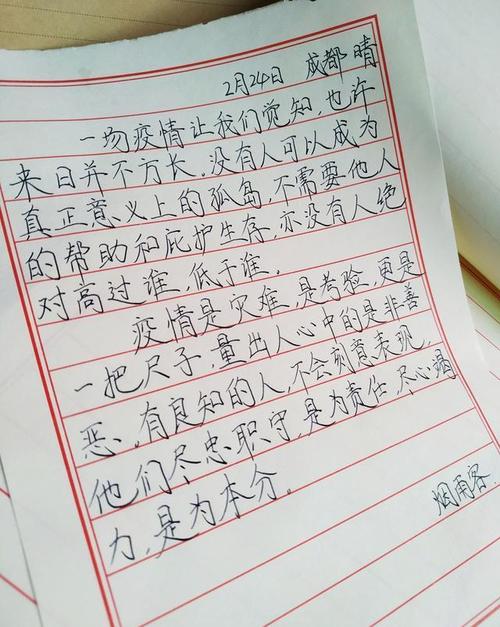 2月24日 成都 晴
一场疫情让我们觉知,也许
来日并不方长,没有人可以成为
真正意义上的孤岛,不需要他人
的帮助和庇护生存,亦没有人绝
对高过谁,低于谁。
疫情是灾难,是考验,更是
一把尺子,量出人心中的是非善
恶、有良知的人,不会刻意表现,
他们尽忠职守,是为责任,尽心竭
力,是为本分。
烟雨客